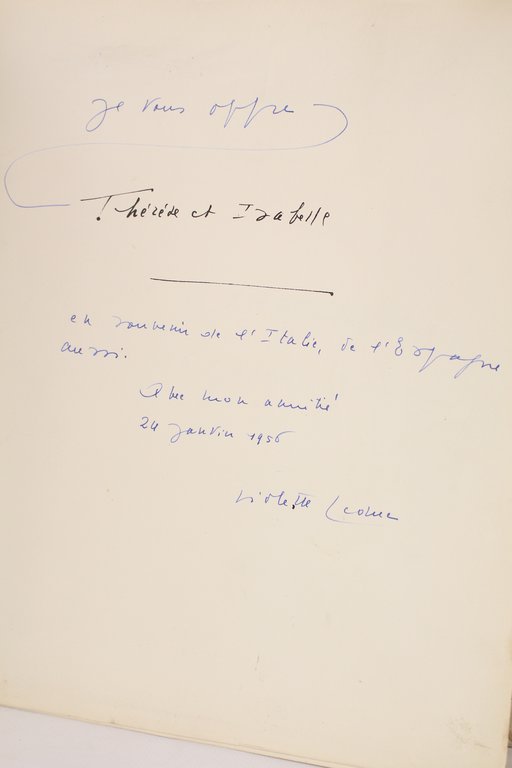 Je vous offre
Thérèse et Isabelle
en souvenir de l'Italie, de l'Espagne
aussi.
Avec mon amitié
24 janvier 1956
Violette Leduc